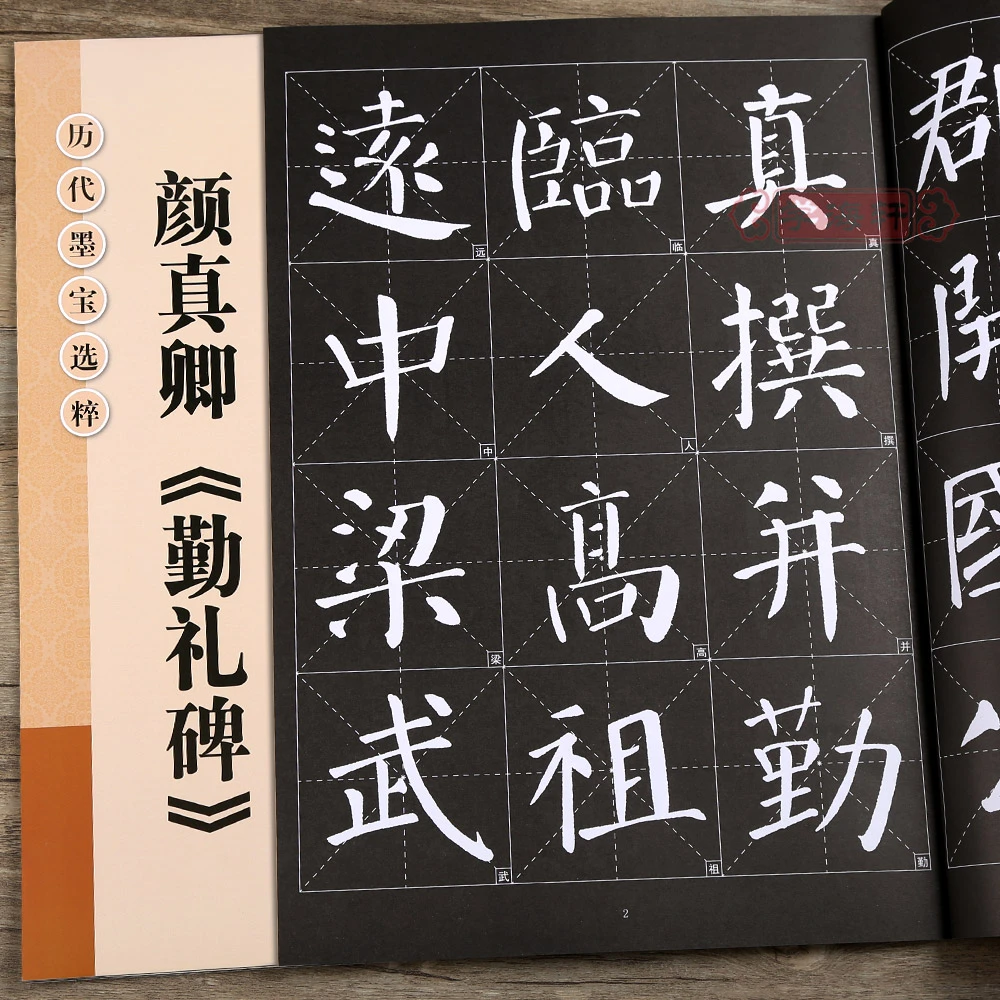 历代墨宝选粹
颜真卿《勤礼碑》
真撰并勤
臨人髙祖
遠中梁武
真
撰
并
勤
临
人
高
祖
远
中
梁
武
2